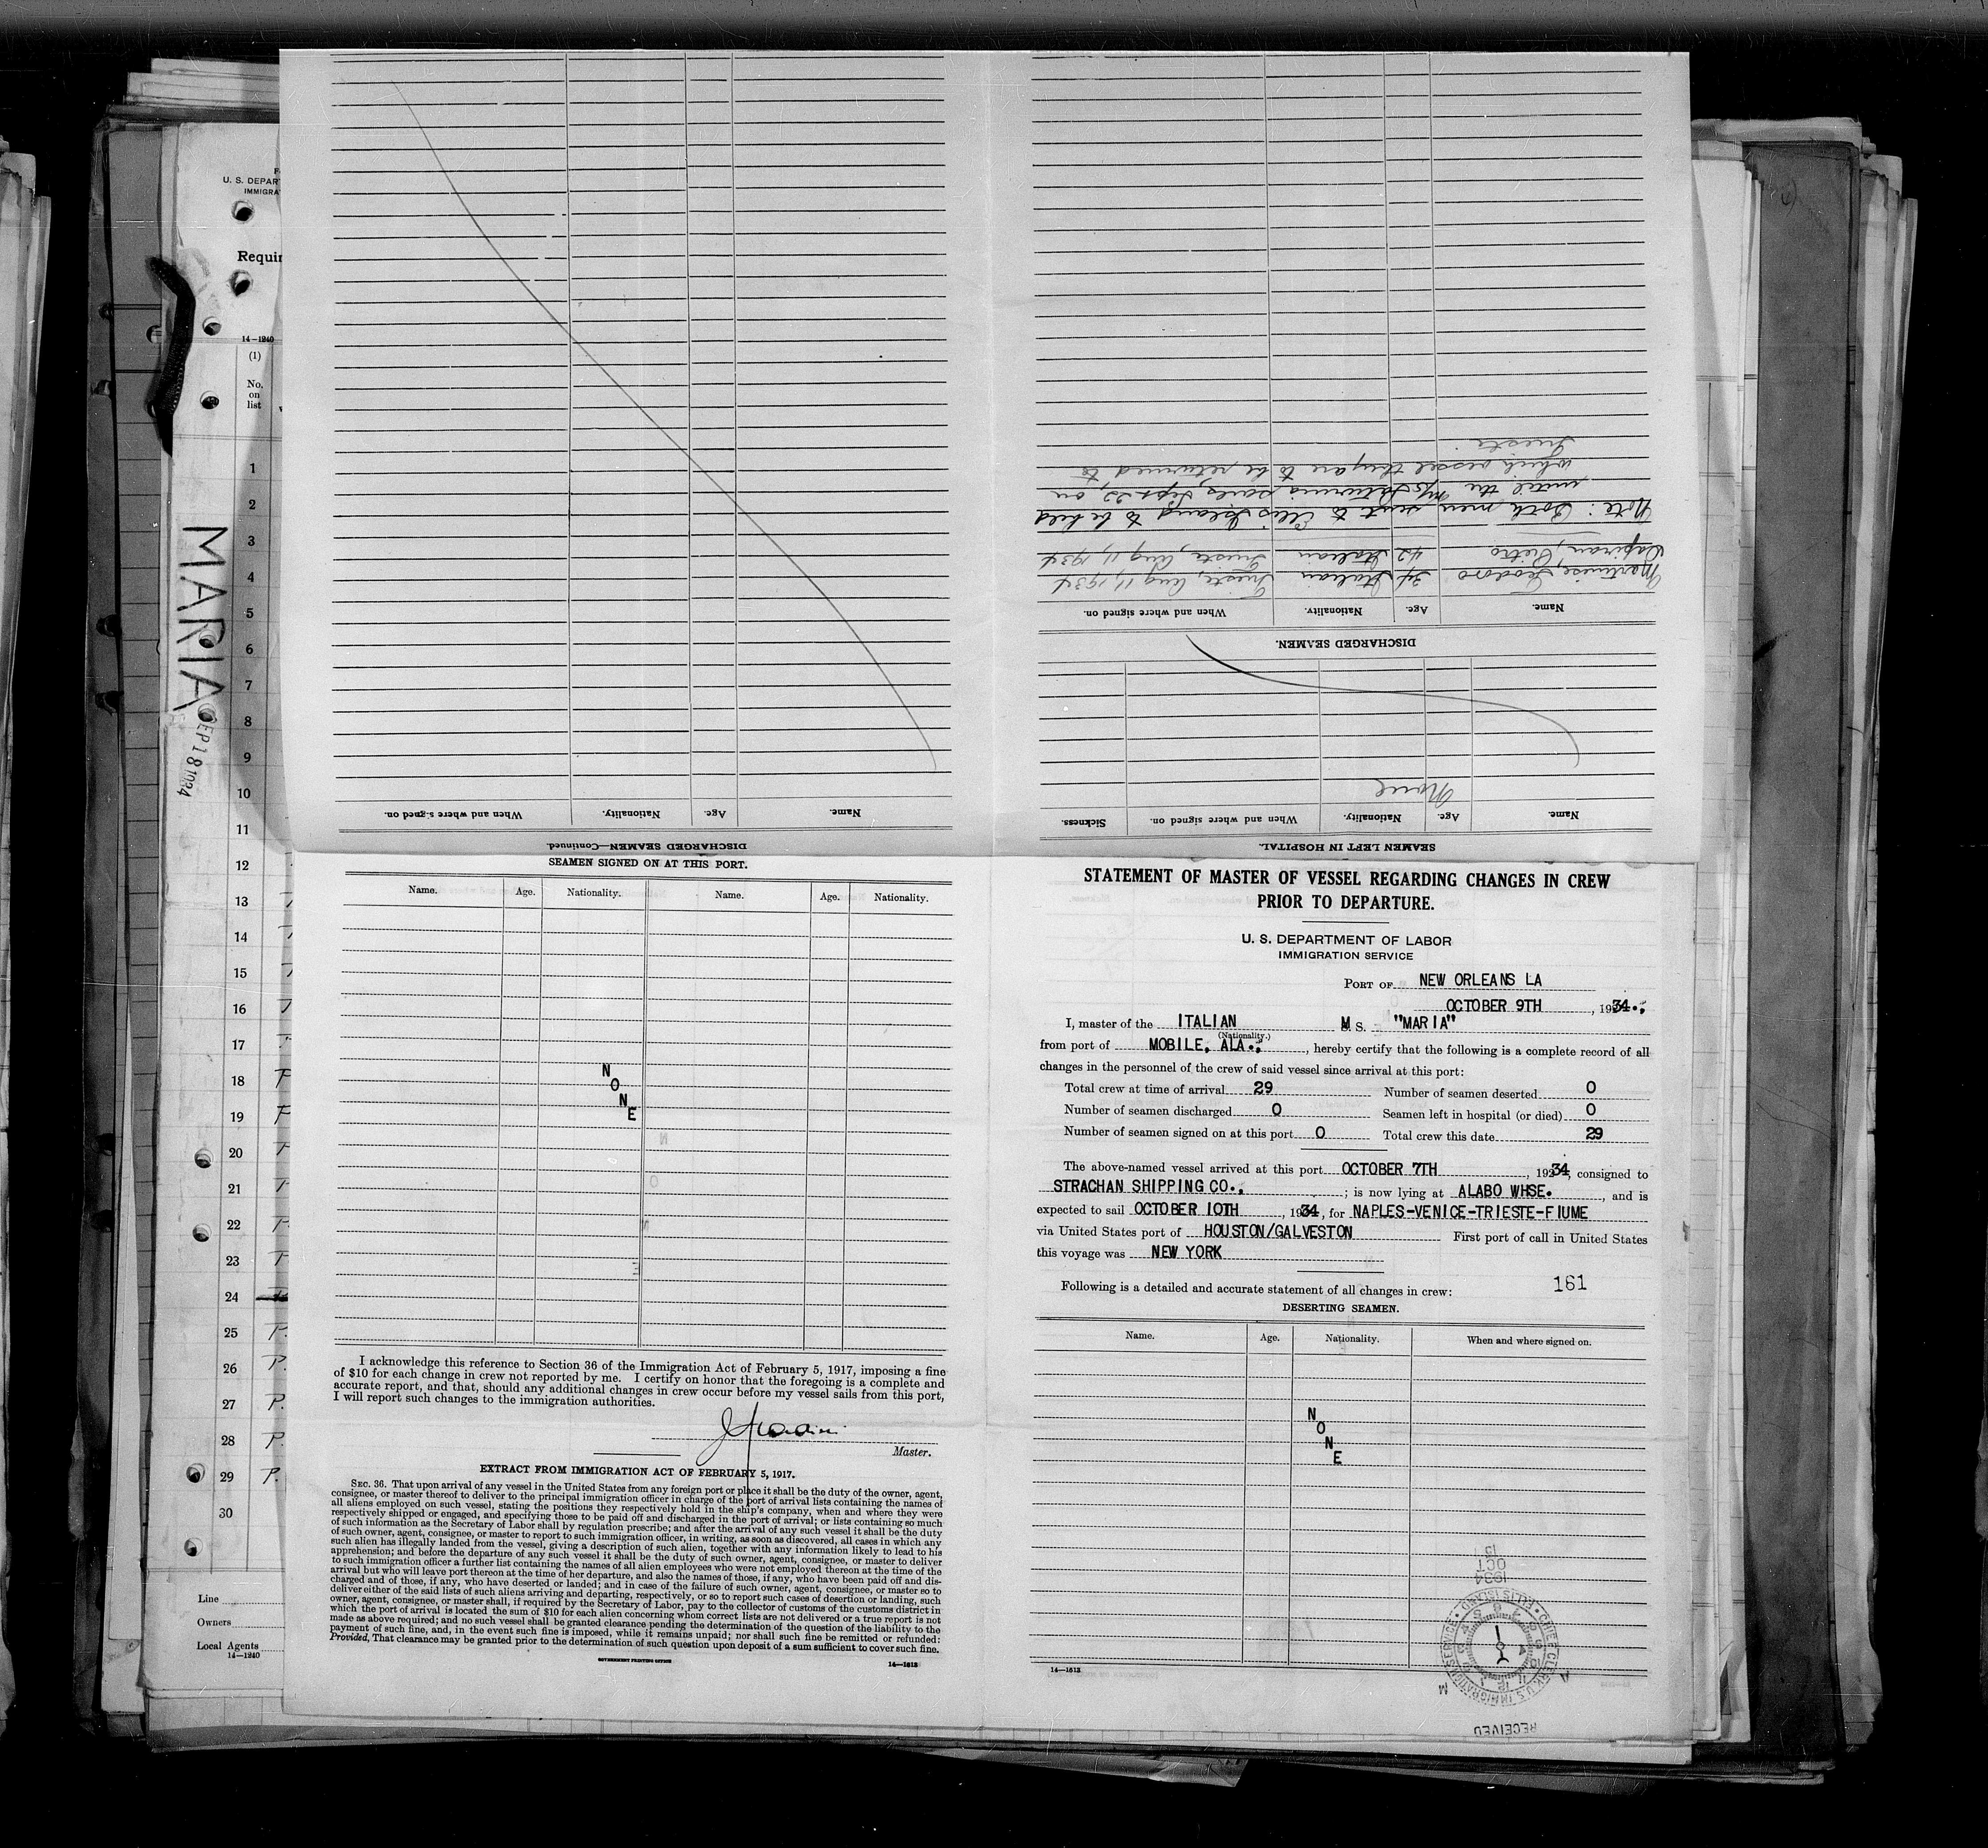 U. S. DEPAR
IMMIGRA
Requir
14—1240
(1)
No.
on
list
1
2
3
4
5
6
7
8
9
10
11
12
13
14
15
16
17
18
19
20
21
22
23
24
25
26
27
28
29
30
P.
P.
P.
Line
Owners
Local Agents
14—1240
MARIA
SEP 18 1934
DISCHARGED SEAMEN—Continued.
Name.
Age.
Nationality.
When and where signed on.
SEAMEN LEFT IN HOSPITAL.
Name.
Age.
Nationality.
When and where signed on.
Sickness.
None
DISCHARGED SEAMEN.
Name.
Age.
Nationality.
When and where signed on.
Teodoro 34 Italian Trieste, Aug 11, 1934
Pietro 42 Italian Trieste, Aug 11, 1934
Note: Both men sent to Ellis Island to be held
until the M/S Saturnia sails, Sept 22, on
which vessel they are to be returned to
Trieste.
SEAMEN SIGNED ON AT THIS PORT.
Name. Age. Nationality. Name. Age. Nationality.
N
O
N
E
I acknowledge this reference to Section 36 of the Immigration Act of February 5, 1917, imposing a fine
of $10 for each change in crew not reported by me. I certify on honor that the foregoing is a complete and
accurate report, and that, should any additional changes in crew occur before my vessel sails from this port,
I will report such changes to the immigration authorities.
Master.
EXTRACT FROM IMMIGRATION ACT OF FEBRUARY 5, 1917.
SEC. 36. That upon arrival of any vessel in the United States from any foreign port or place it shall be the duty of the owner, agent,
consignee, or master thereof to deliver to the principal immigration officer in charge of the port of arrival lists containing the names of
all aliens employed on such vessel, stating the positions they respectively hold in the ship's company, when and where they were
respectively shipped or engaged, and specifying those to be paid off and discharged in the port of arrival; or lists containing so much
of such information as the Secretary of Labor shall by regulation prescribe; and after the arrival of any such vessel it shall be the duty
of such owner, agent, consignee, or master to report to such immigration officer, in writing, as soon as discovered, all cases in which any
such alien has illegally landed from the vessel, giving a description of such alien, together with any information likely to lead to his
apprehension; and before the departure of any such vessel it shall be the duty of such owner, agent, consignee, or master to deliver
to such immigration officer a further list containing the names of all alien employees who were not employed thereon at the time of the
arrival but who will leave port thereon at the time of her departure, and also the names of those, if any, who have been paid off and dis-
charged and of those, if any, who have deserted or landed; and in case of the failure of such owner, agent, consignee, or master so to
deliver either of the said lists of such aliens arriving and departing, respectively, or so to report such cases of desertion or landing, such
owner, agent, consignee, or master shall, if required by the Secretary of Labor, pay to the collector of customs of the customs district in
which the port of arrival is located the sum of $10 for each alien concerning whom correct lists are not delivered or a true report is not
made as above required; and no such vessel shall be granted clearance pending the determination of the question of the liability to the
payment of such fine, and, in the event such fine is imposed, while it remains unpaid; nor shall such fine be remitted or refunded:
Provided, That clearance may be granted prior to the determination of such question upon deposit of a sum sufficient to cover such fine.
GOVERNMENT PRINTING OFFICE 14—1613
STATEMENT OF MASTER OF VESSEL REGARDING CHANGES IN CREW
PRIOR TO DEPARTURE.
U. S. DEPARTMENT OF LABOR
IMMIGRATION SERVICE
PORT OF NEW ORLEANS LA
OCTOBER 9TH , 1934.;
I, master of the ITALIAN M S. "MARIA"
(Nationality.)
from port of MOBILE, ALA.; , hereby certify that the following is a complete record of all
changes in the personnel of the crew of said vessel since arrival at this port:
Total crew at time of arrival 29 Number of seamen deserted 0
Number of seamen discharged 0 Seamen left in hospital (or died) 0
Number of seamen signed on at this port 0 Total crew this date 29
The above-named vessel arrived at this port OCTOBER 7TH , 1934, consigned to
STRACHAN SHIPPING CO., ; is now lying at ALABO WHSE. , and is
expected to sail OCTOBER 10TH , 1934, for NAPLES-VENICE-TRIESTE-FIUME
via United States port of HOUSTON/GALVESTON First port of call in United States
this voyage was NEW YORK
161
Following is a detailed and accurate statement of all changes in crew:
DESERTING SEAMEN.
Name. Age. Nationality. When and where signed on.
N
O
N
E
14—1613
RECEIVED
CHIEF CLERK, U.S. IMMIGRATION SERVICE • ELLIS ISLAND •
A M
1934
OCT
15